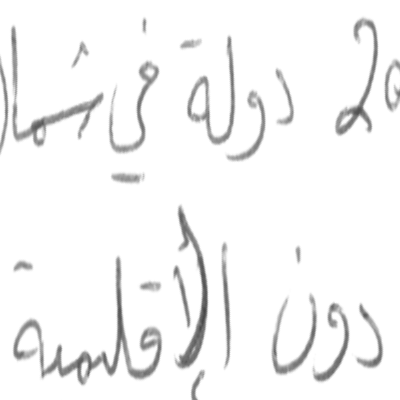 20 دولة في شمال
دون الإقليمية